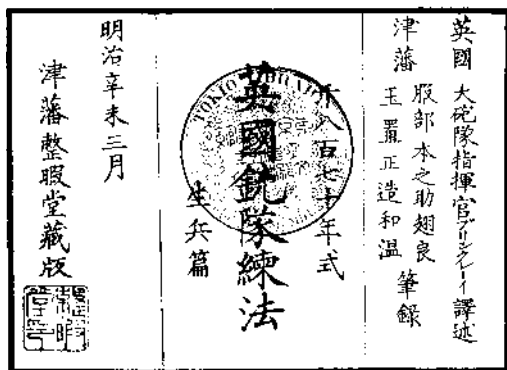 英國 大砲隊指揮官ブリンクレーイ譯述
津藩 服部本之助翅良
玉置正造和温 筆録
千八百七十年式
英國銃隊練法
生兵篇
TOKIO LIBRARY
明治辛未三月
津藩整暇堂藏版